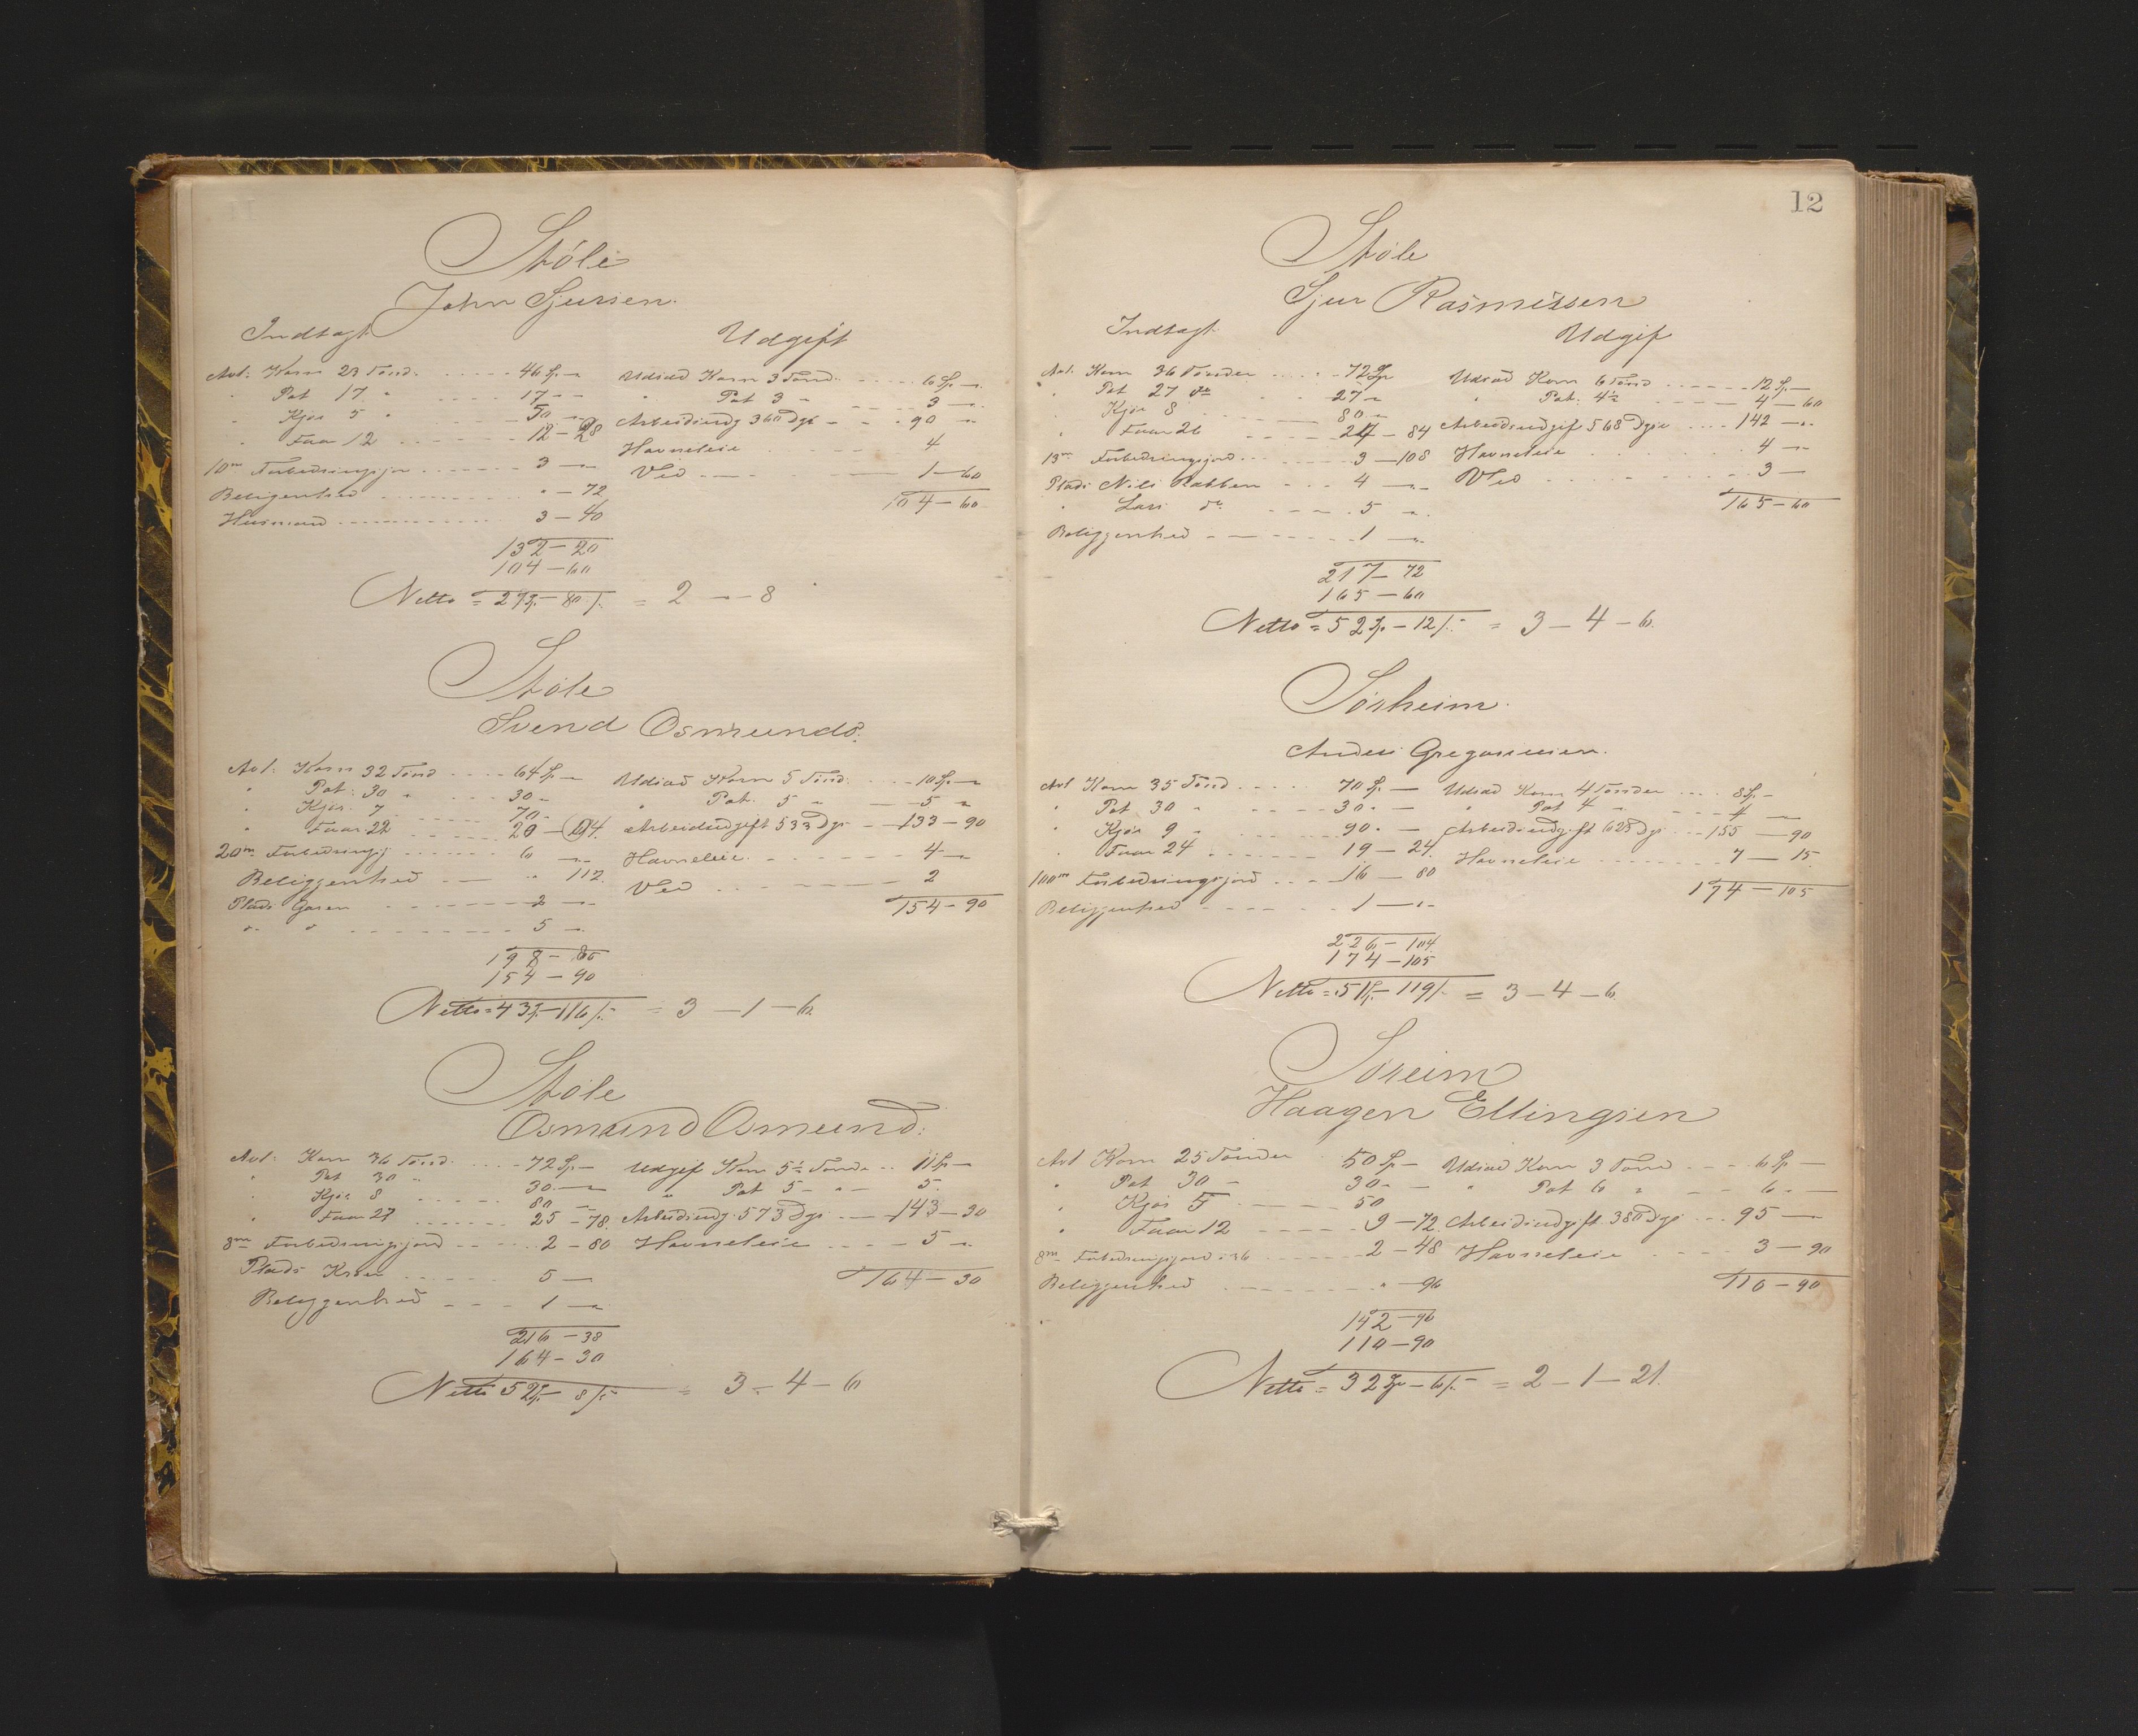 Støle
John Sjursen.
Indtægt Udgift
Avl: Korn 23 Tønd. 46 Sp. „ Udsæd Korn 3 Tønd. 6 Sp. „
" Pot 17. " 17 - „ " Pot 3 „ 3 „
" Kjør 5 " 50 „ Arbeidsudg 360 Dgv 90 „
" Faar 12 12 - 28 Havneleie 4
10m Forbedringsjor 3 „ Ved 1 - 60
Beligenhed " - 72 104 - 60
Husmand 3 - 40
132 - 20
104 - 60
Netto = 27 Sp. - 80 s. = 2 - „ - 8
Støle
Svend Osmunds.
Avl: Korn 32 Tønd 64 Sp. „ Udsæd Korn 5 Tønd. 10 Sp. „
" Pot: 30 " 30 „ " Pot. 5 „ 5 „
" Kjør. 7 70 „ Arbeidsudgift 533 Dgv 133 - 90
" Faar 22 20 - 94. Havneleie 4 „
20m Forbedringsj 6 „ Ved 2
Beliggenhed " 112. 154 - 90
Plads Garen 2 „
" " 5 „
198 - 86
154 - 90
Netto = 43 Sp. - 116 s. = 3 - 1 - 6.
Støle
Osmund Osmund.
Avl: Korn 36 Tønd. 72 Sp. - Udgif Korn 5½ Tønde 11 Sp -
" Pot 30 " 30. „ " Pot 5 - „ 5.
" Kjør 8 80 „ Arbeidsudg. 573 Dgv 143 - 30
" Faar 27 25 - 78. Havneleie 5 „
8m Forbedringsjord 2 - 80 164 - 30
Plads Kroen 5 -
Beliggenhed 1 „
216 - 38
164 - 30
Netto 52 Sp. - 8 s. = 3 - 4 - 6
12
Støle
Sjur Rasmussen
Indtægt Udgif
Avl: Korn 36 Tønder 72 Sp Udsæd Korn 6 Tønd 12 Sp. -
" Pot 27 do 27 „ " Pot: 4½ 4 - 60
" Kjør 8 80 „ Arbeidsudgif 568 Dgv 142 „
" Faar 26 24 - 84 Havneleie 4 „
13m Forbedringsjord 3 - 108 Ved 3 -
Plads Nils Rabben 4 „ 165 - 60
" Lars do 5 „
Beliggenhed 1 „
217 - 72
165 - 60
Netto = 52 Sp - 12 s. = 3 - 4 - 6.
Sørheim.
Anders Gregoriusen.
Avl Korn 35 Tønd 70 Sp. - Udsæd Korn 4 Tønder 8 Sp. -
" Pot 30 " 30. - " Pot 4 " 4 -
" Kjør 9 " 90. - Arbeidsudgift 623 Dgv 155 - 90
" Faar 24 19 - 24. Havneleie 7 - 15
100m Forbedringsjord 16 - 80 174 - 105
Beliggenhed 1 „
226 - 104
174 - 105
Netto = 51 Sp. - 119 s. = 3 - 4 - 6.
Søreim
Haagen Ellingsen
Avl Korn 25 Tønder 50 Sp - Udsæd Korn 3 Tønd 6 Sp -
" Pot 30 „ 30 - " Pot 6 " 6 „
" Kjør 5 50 Arbeidsudgift 380 Dgv 95 „
" Faar 12 9 - 72. Havneleie 3 - 90
8m Forbedringsjord 36 2 - 48 110 - 90
Beliggenhed " - 96
142 - 96
110 - 90
Netto = 32 Sp - 6 s. = 2 - 1 - 21.